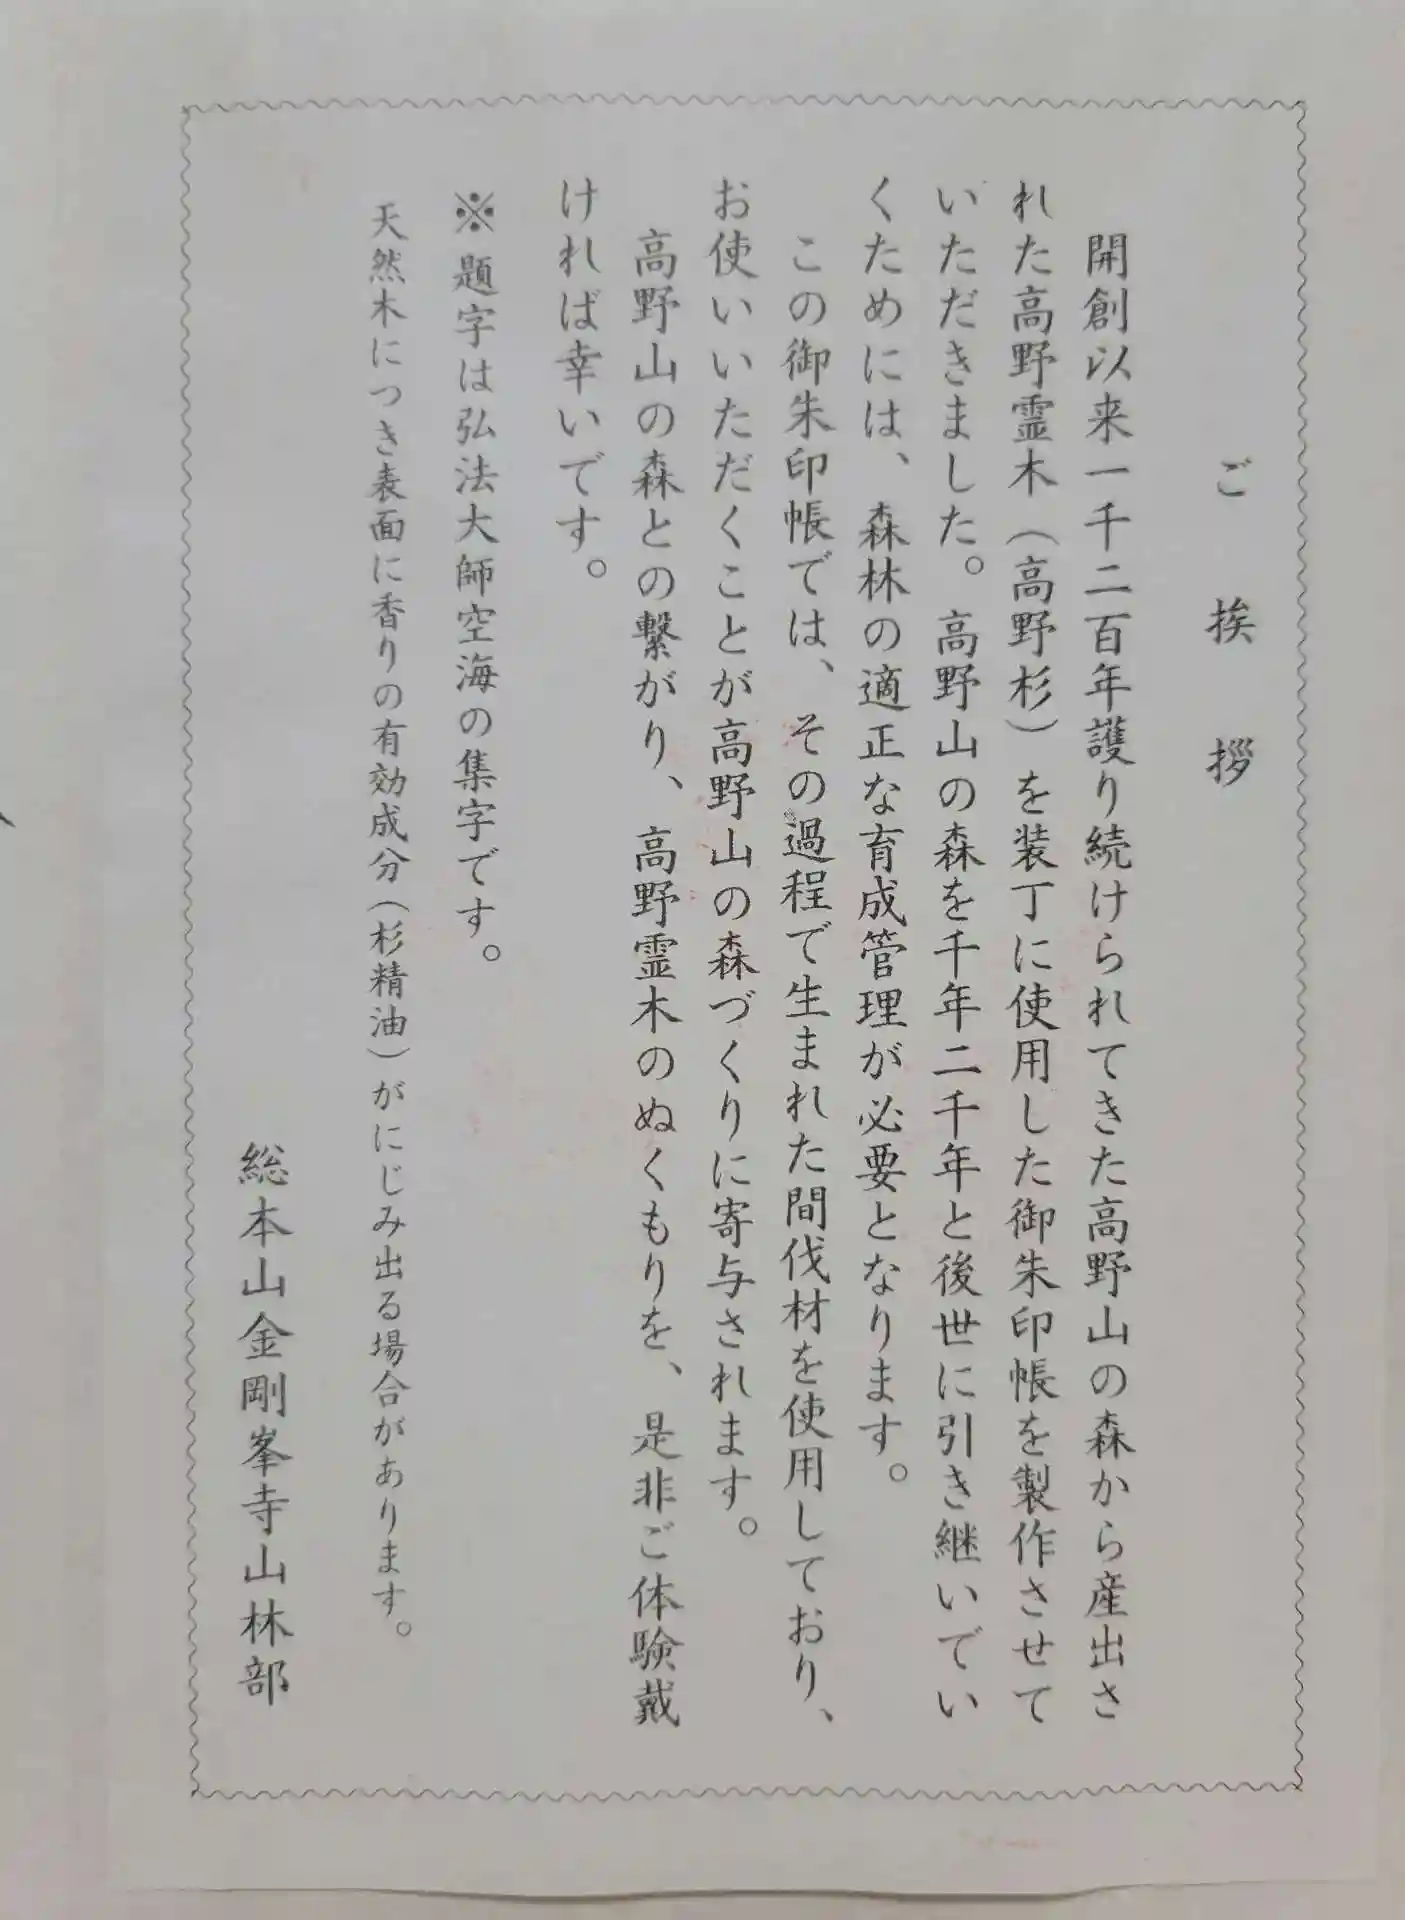 ご挨拶
開創以来一千二百年護り続けられてきた高野山の森から産出さ
れた高野霊木（高野杉）を装丁に使用した御朱印帳を製作させて
いただきました。高野山の森を千年二千年と後世に引き継いでい
くためには、森林の適正な育成管理が必要となります。
この御朱印帳では、その過程で生まれた間伐材を使用しており、
お使いいただくことが高野山の森づくりに寄与されます。
高野山の森との繋がり、高野霊木のぬくもりを、是非ご体験戴
ければ幸いです。
※題字は弘法大師空海の集字です。
天然木につき表面に香りの有効成分（杉精油）がにじみ出る場合があります。
総本山金剛峯寺山林部